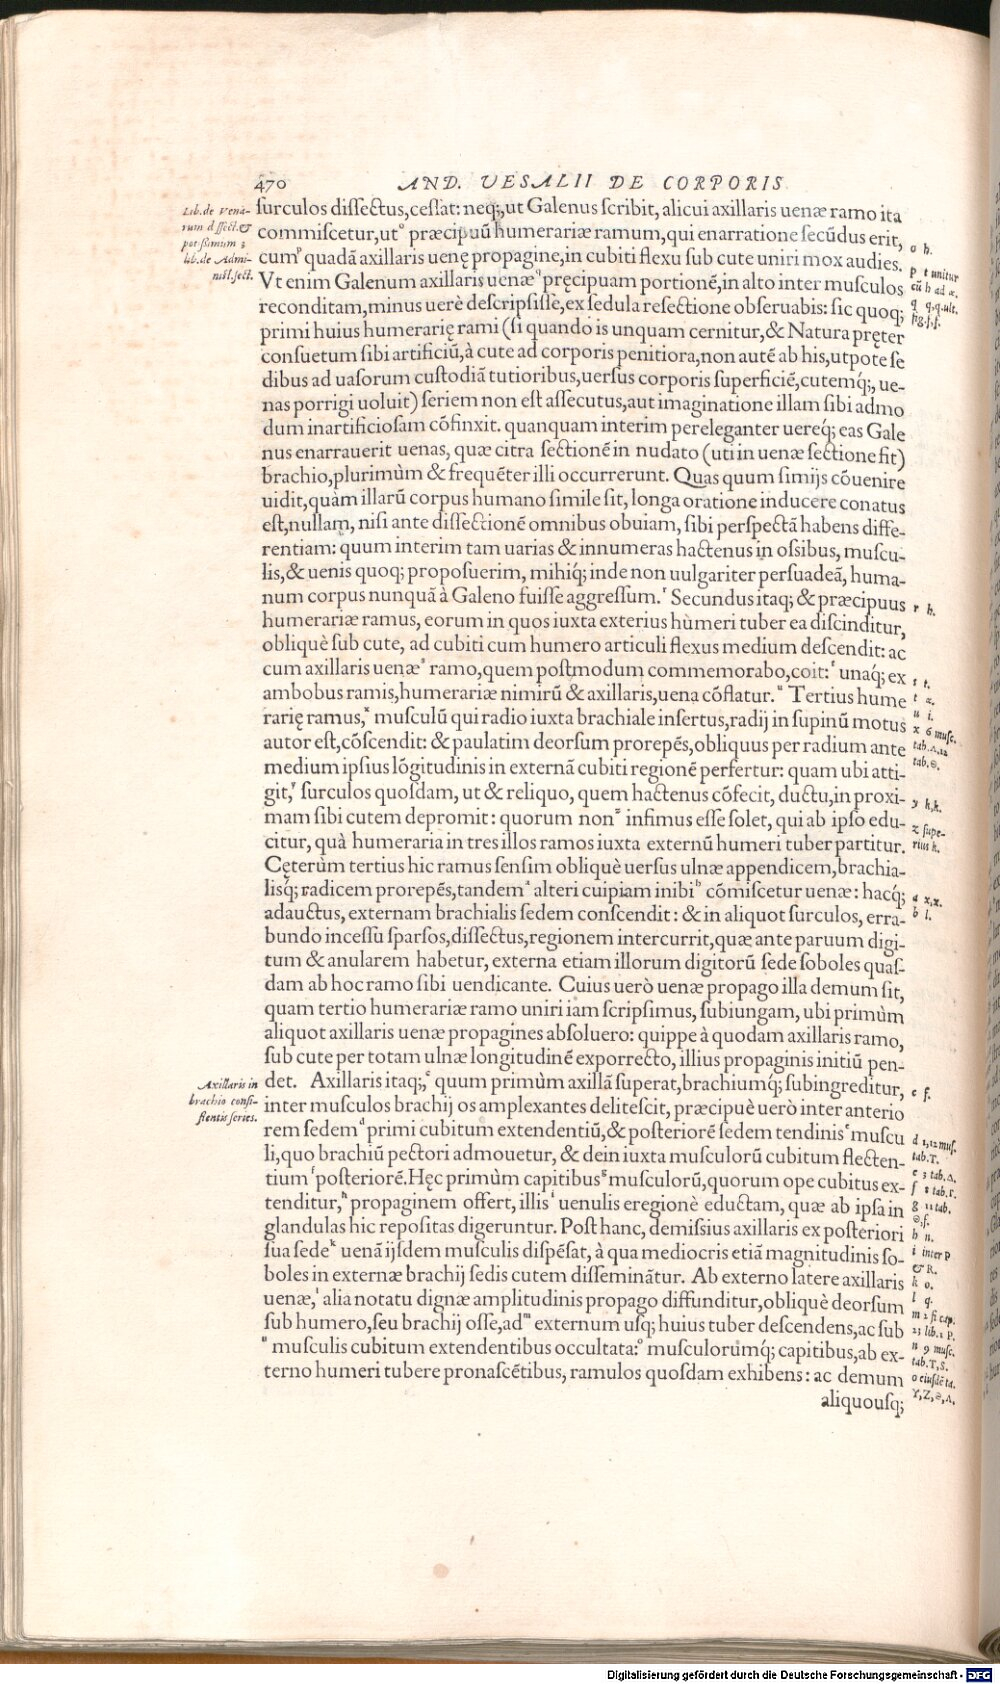 470 AND. VESALII DE CORPORIS
Lib. de Vena-
rum dissect. &
potissimum 3
lib. de Admi-
nist. sect.
surculos dissectus, cessat: neq;, ut Galenus scribit, alicui axillaris uenæ ramo ita
commiscetur, ut° præcipuũ humerariæ ramum, qui enarratione secũdus erit,
cumᵖ quadã axillaris uenę propagine, in cubiti flexu sub cute uniri mox audies.
Vt enim Galenum axillaris uenæ^q pręcipuam portionẽ, in alto inter musculos
reconditam, minus uerè descripsisse, ex sedula resectione obseruabis: sic quoq;
primi huius humerarię rami (si quando is unquam cernitur, & Natura pręter
consuetum sibi artificiũ, à cute ad corporis penitiora, non autẽ ab his, utpote se
dibus ad uasorum custodiã tutioribus, uersus corporis superficiẽ, cutemq́;, ue-
nas porrigi uoluit) seriem non est assecutus, aut imaginatione illam sibi admo
dum inartificiosam cõfinxit. quanquam interim pereleganter uereq́; eas Gale
nus enarrauerit uenas, quæ citra sectionẽ in nudato (uti in uenæ sectione fit)
brachio, plurimùm & frequẽter illi occurrerunt. Quas quum simijs cõuenire
uidit, quàm illarũ corpus humano simile sit, longa oratione inducere conatus
est, nullam, nisi ante dissectionẽ omnibus obuiam, sibi perspectã habens diffe-
rentiam: quum interim tam uarias & innumeras hactenus in ossibus, muscu-
lis, & uenis quoq; proposuerim, mihiq́; inde non uulgariter persuadeã, huma-
num corpus nunquã à Galeno fuisse aggressum.ʳ Secundus itaq; & præcipuus
humerariæ ramus, eorum in quos iuxta exterius hùmeri tuber ea discinditur,
obliquè sub cute, ad cubiti cum humero articuli flexus medium descendit: ac
cum axillaris uenæˢ ramo, quem postmodum commemorabo, coit:ᵗ unaq́; ex
ambobus ramis, humerariæ nimirũ & axillaris, uena cõflatur.ᵘ Tertius hume
rarię ramus,ˣ musculũ qui radio iuxta brachiale insertus, radij in supinũ motus
autor est, cõscendit: & paulatim deorsum prorepẽs, obliquus per radium ante
medium ipsius lõgitudinis in externã cubiti regionẽ perfertur: quam ubi atti-
git,ʸ surculos quosdam, ut & reliquo, quem hactenus cõfecit, ductu, in proxi-
mam sibi cutem depromit: quorum nonᶻ infimus esse solet, qui ab ipso edu-
citur, quà humeraria in tres illos ramos iuxta externũ humeri tuber partitur.
Cęterùm tertius hic ramus sensim obliquè uersus ulnæ appendicem, brachia-
lisq́; radicem prorepẽs, tandemᵃ alteri cuipiam inibiᵇ cõmiscetur uenæ: hacq́;
adauctus, externam brachialis sedem conscendit: & in aliquot surculos, erra-
bundo incessu sparsos, dissectus, regionem intercurrit, quæ ante paruum digi-
tum & anularem habetur, externa etiam illorum digitorũ sede soboles quas-
dam ab hoc ramo sibi uendicante. Cuius uerò uenæ propago illa demum sit,
quam tertio humerariæ ramo uniri iam scripsimus, subiungam, ubi primùm
aliquot axillaris uenæ propagines absoluero: quippe à quodam axillaris ramo,
sub cute per totam ulnæ longitudinẽ exporrecto, illius propaginis initiũ pen-
Axillaris in
brachio consi-
stentis series.
det. Axillaris itaq;,ᶜ quum primùm axillã superat, brachiumq́; subingreditur,
inter musculos brachij os amplexantes delitescit, præcipuè uerò inter anterio
rem sedemᵈ primi cubitum extendentiũ, & posteriorẽ sedem tendinisᵉ muscu
li, quo brachiũ pectori admouetur, & dein iuxta musculorũ cubitum flecten-
tiumᶠ posteriorẽ. Hęc primùm capitibusᵍ musculorũ, quorum ope cubitus ex-
tenditur,ʰ propaginem offert, illisⁱ uenulis eregionẽ eductam, quæ ab ipsa in
glandulas hic repositas digeruntur. Post hanc, demissius axillaris ex posteriori
sua sedeᵏ uenã ijsdem musculis dispẽsat, à qua mediocris etiã magnitudinis so-
boles in externæ brachij sedis cutem disseminãtur. Ab externo latere axillaris
uenæ,ˡ alia notatu dignæ amplitudinis propago diffunditur, obliquè deorsum
sub humero, seu brachij osse, adᵐ externum usq; huius tuber descendens, ac sub
ⁿ musculis cubitum extendentibus occultata:° musculorumq́; capitibus, ab ex-
terno humeri tubere pronascẽtibus, ramulos quosdam exhibens: ac demum
aliquousq;
o h.
p t unitur
cũ h ad α.
q q,q. ult.
fig. ſ, ſ.
r h.
s t.
t α.
u i.
x 6 musc.
y h,h.
z supe-
rius h.
a x,x.
b l.
c f.
d 1,12 mus.
tab. T.
e 3 tab. Δ.
f 8 tab. Γ.
g 11 tab.
h n.
i inter P
& R.
k o.
l q.
m 2 fi cap.
23 lib. 1 P.
n 9 musc.
tab. T, S.
o eiusdẽ ta.